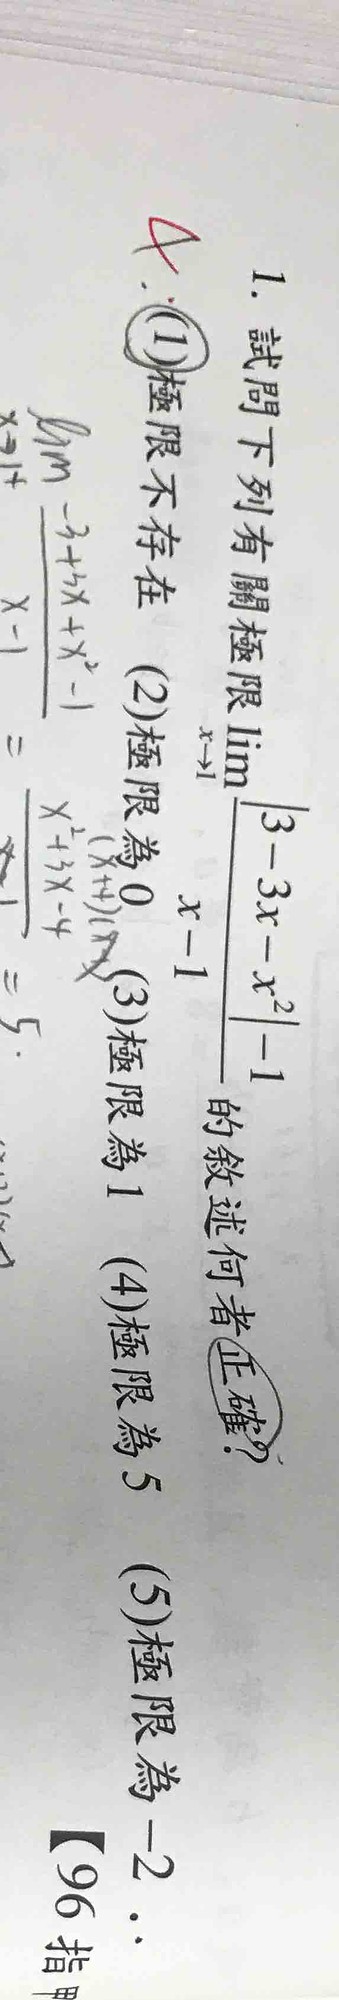 1. 試問下列有關極限 lim x→1 |3－3x－x²|－1 / x－1 的敘述何者正確？
4. (1)極限不存在 (2)極限為0 (3)極限為1 (4)極限為5 (5)極限為－2
【96 指甲
(x+4)(x
lim x→1⁺ -3+3x+x²-1 / x-1 = x²+3x-4 / x-1 = 5.